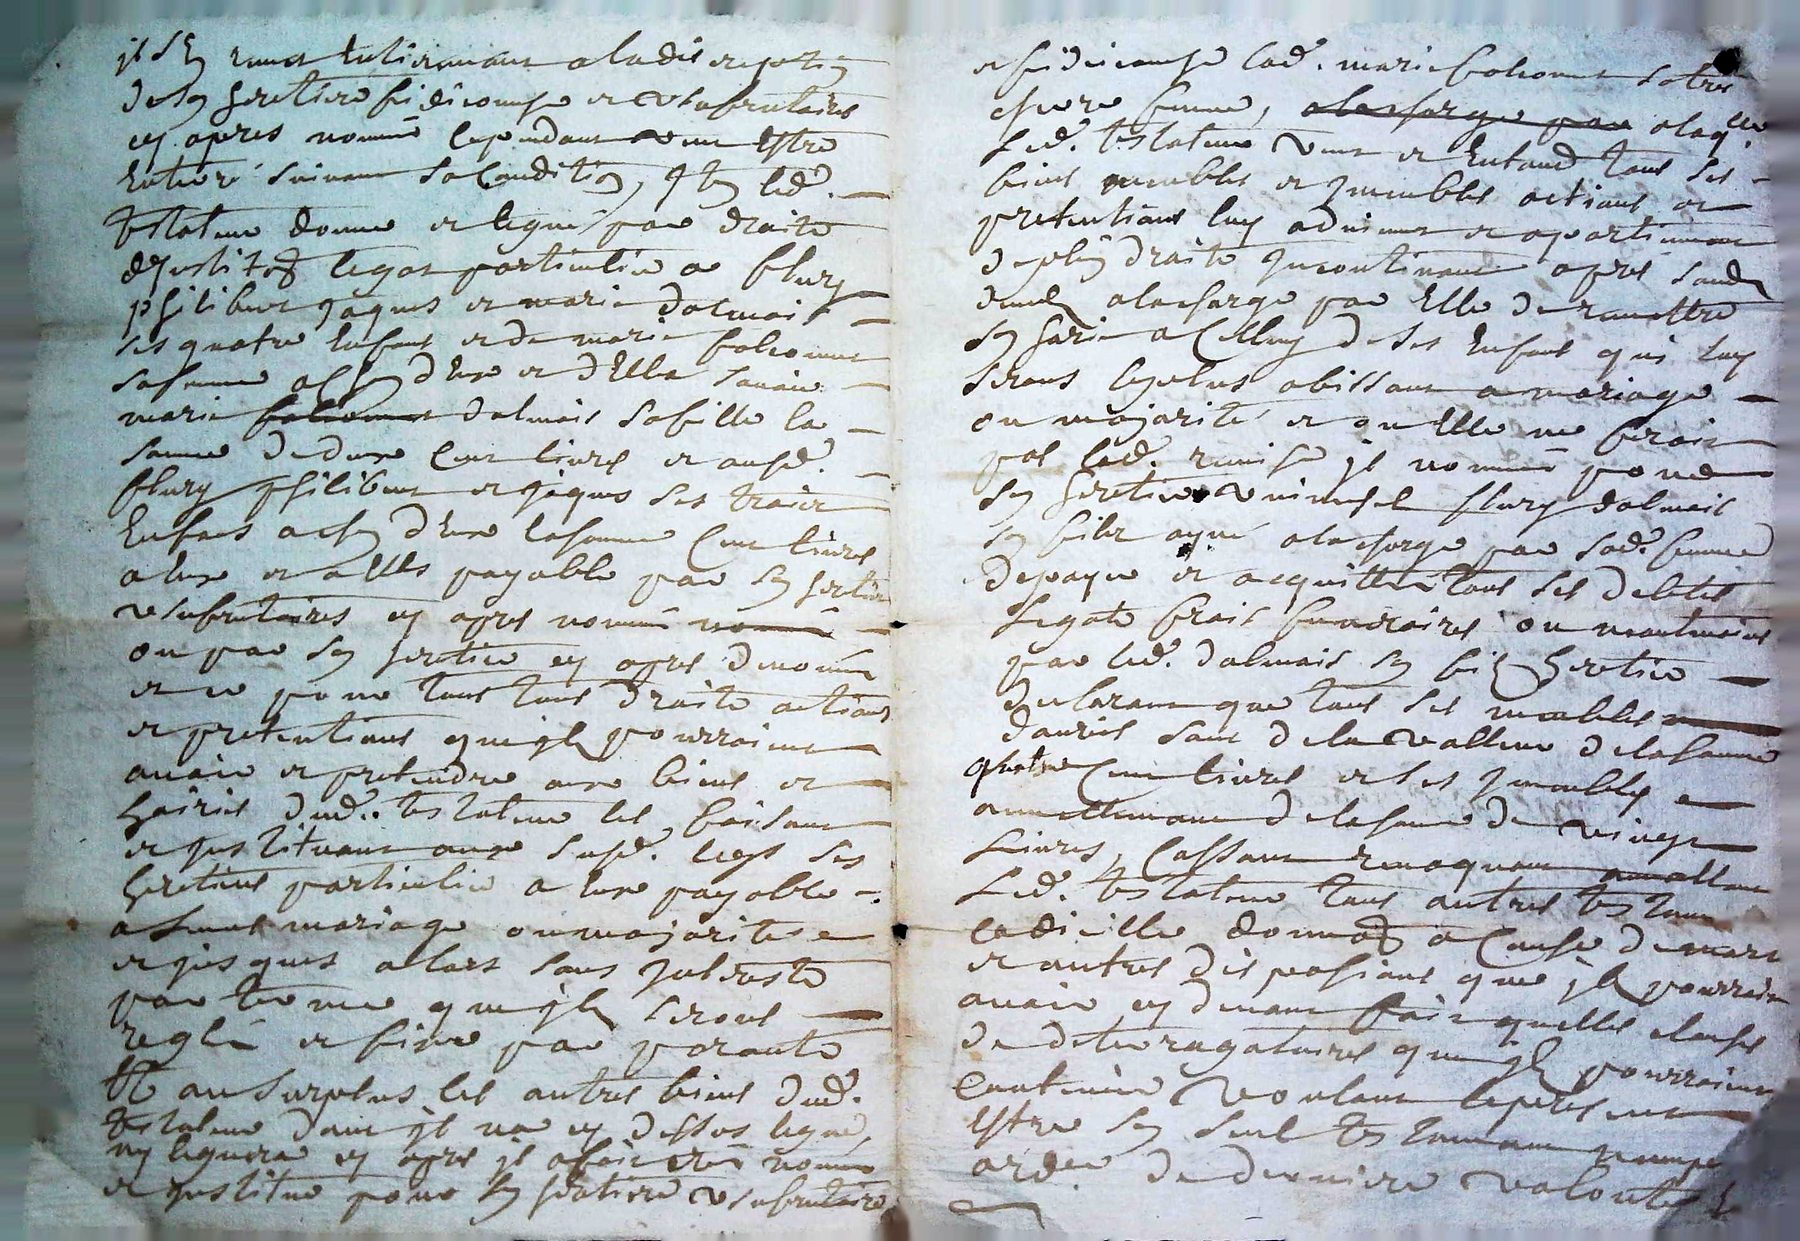 jl s'en remet entieremant a la discreption
de son heretiere fideicomise et vsufrutaires
cy apres nommé cependant veut estre
enterré suivant sa condition, Jtem led.
testateur donne et legue par droite
d'jnstiton legat particulier a fleury
philibert jaques et marie dalmais
ses quatre enfans et de marie
sa femme a chn d'eux et d'Elle sauoir
marie dalmais sa fille la
somme de deux cent liures et ausd.
fleury philibert et jaques ses trois
enfans a chn d'eux la somme cent liures
a eux et a elle payable par son heretiere
vsufrutaires cy apres nommé nommé
ou par son heretier cy apres denomé
et ce pour tous tous droits actions
et pretentions qu'jls pourroient
auoir et pretendre aux biens et
hoiries dud. testateur les faisant
et jnstituant aux susd. legs ses
heretiers particulier a eux payable
a leurs mariage ou majorité
et jusques alors sans jnterests
par terme qu'jls seront
reglé et fixé par parants
Et au surplus les autres biens dud.
testateur dont jl na cy dessus legué,
ny leguera cy apres jl a fait créé nommé
et jnstitue pour son heretiere vsufrutaire
et fideicomise lad. marie sa tres
chere femme, a la charge par a laqlle
Led. testateur veut et entand tous ses
biens meubles et jmeubles actions et
pretentions luy advienne et apartienne
de plein droits jncontinant apres son
deces a la charge par elle de remettre
son hoirie a celluy de ses enfans qui luy
seront a mariage
ou majorité et ou elle ne feroit
pas lad. remise jl nomme pour
son heretier vniuersel fleury dalmais
son fils ayné a la charge par sad. femme
de payer et acquitter tous ses debtes
Legats frais funeraires ou
par led. dalmais son fils heretier
declarant que tous ses meubles
sont de la valleur de la somme
quatre cent liures et ses jmeubles
annuellemant de la some de vingt
Liures, Cassant reuoquant annullant
Led. testateur tous autres testam
codicille donnaon a cause de mort
et autres dispositions que jl pourroit
auoir cy deuant fait quelles clauses
de derogatoires qu'jls pourroient
contenir voulant le present
estre son seul testamant
ord. de derniere volonté